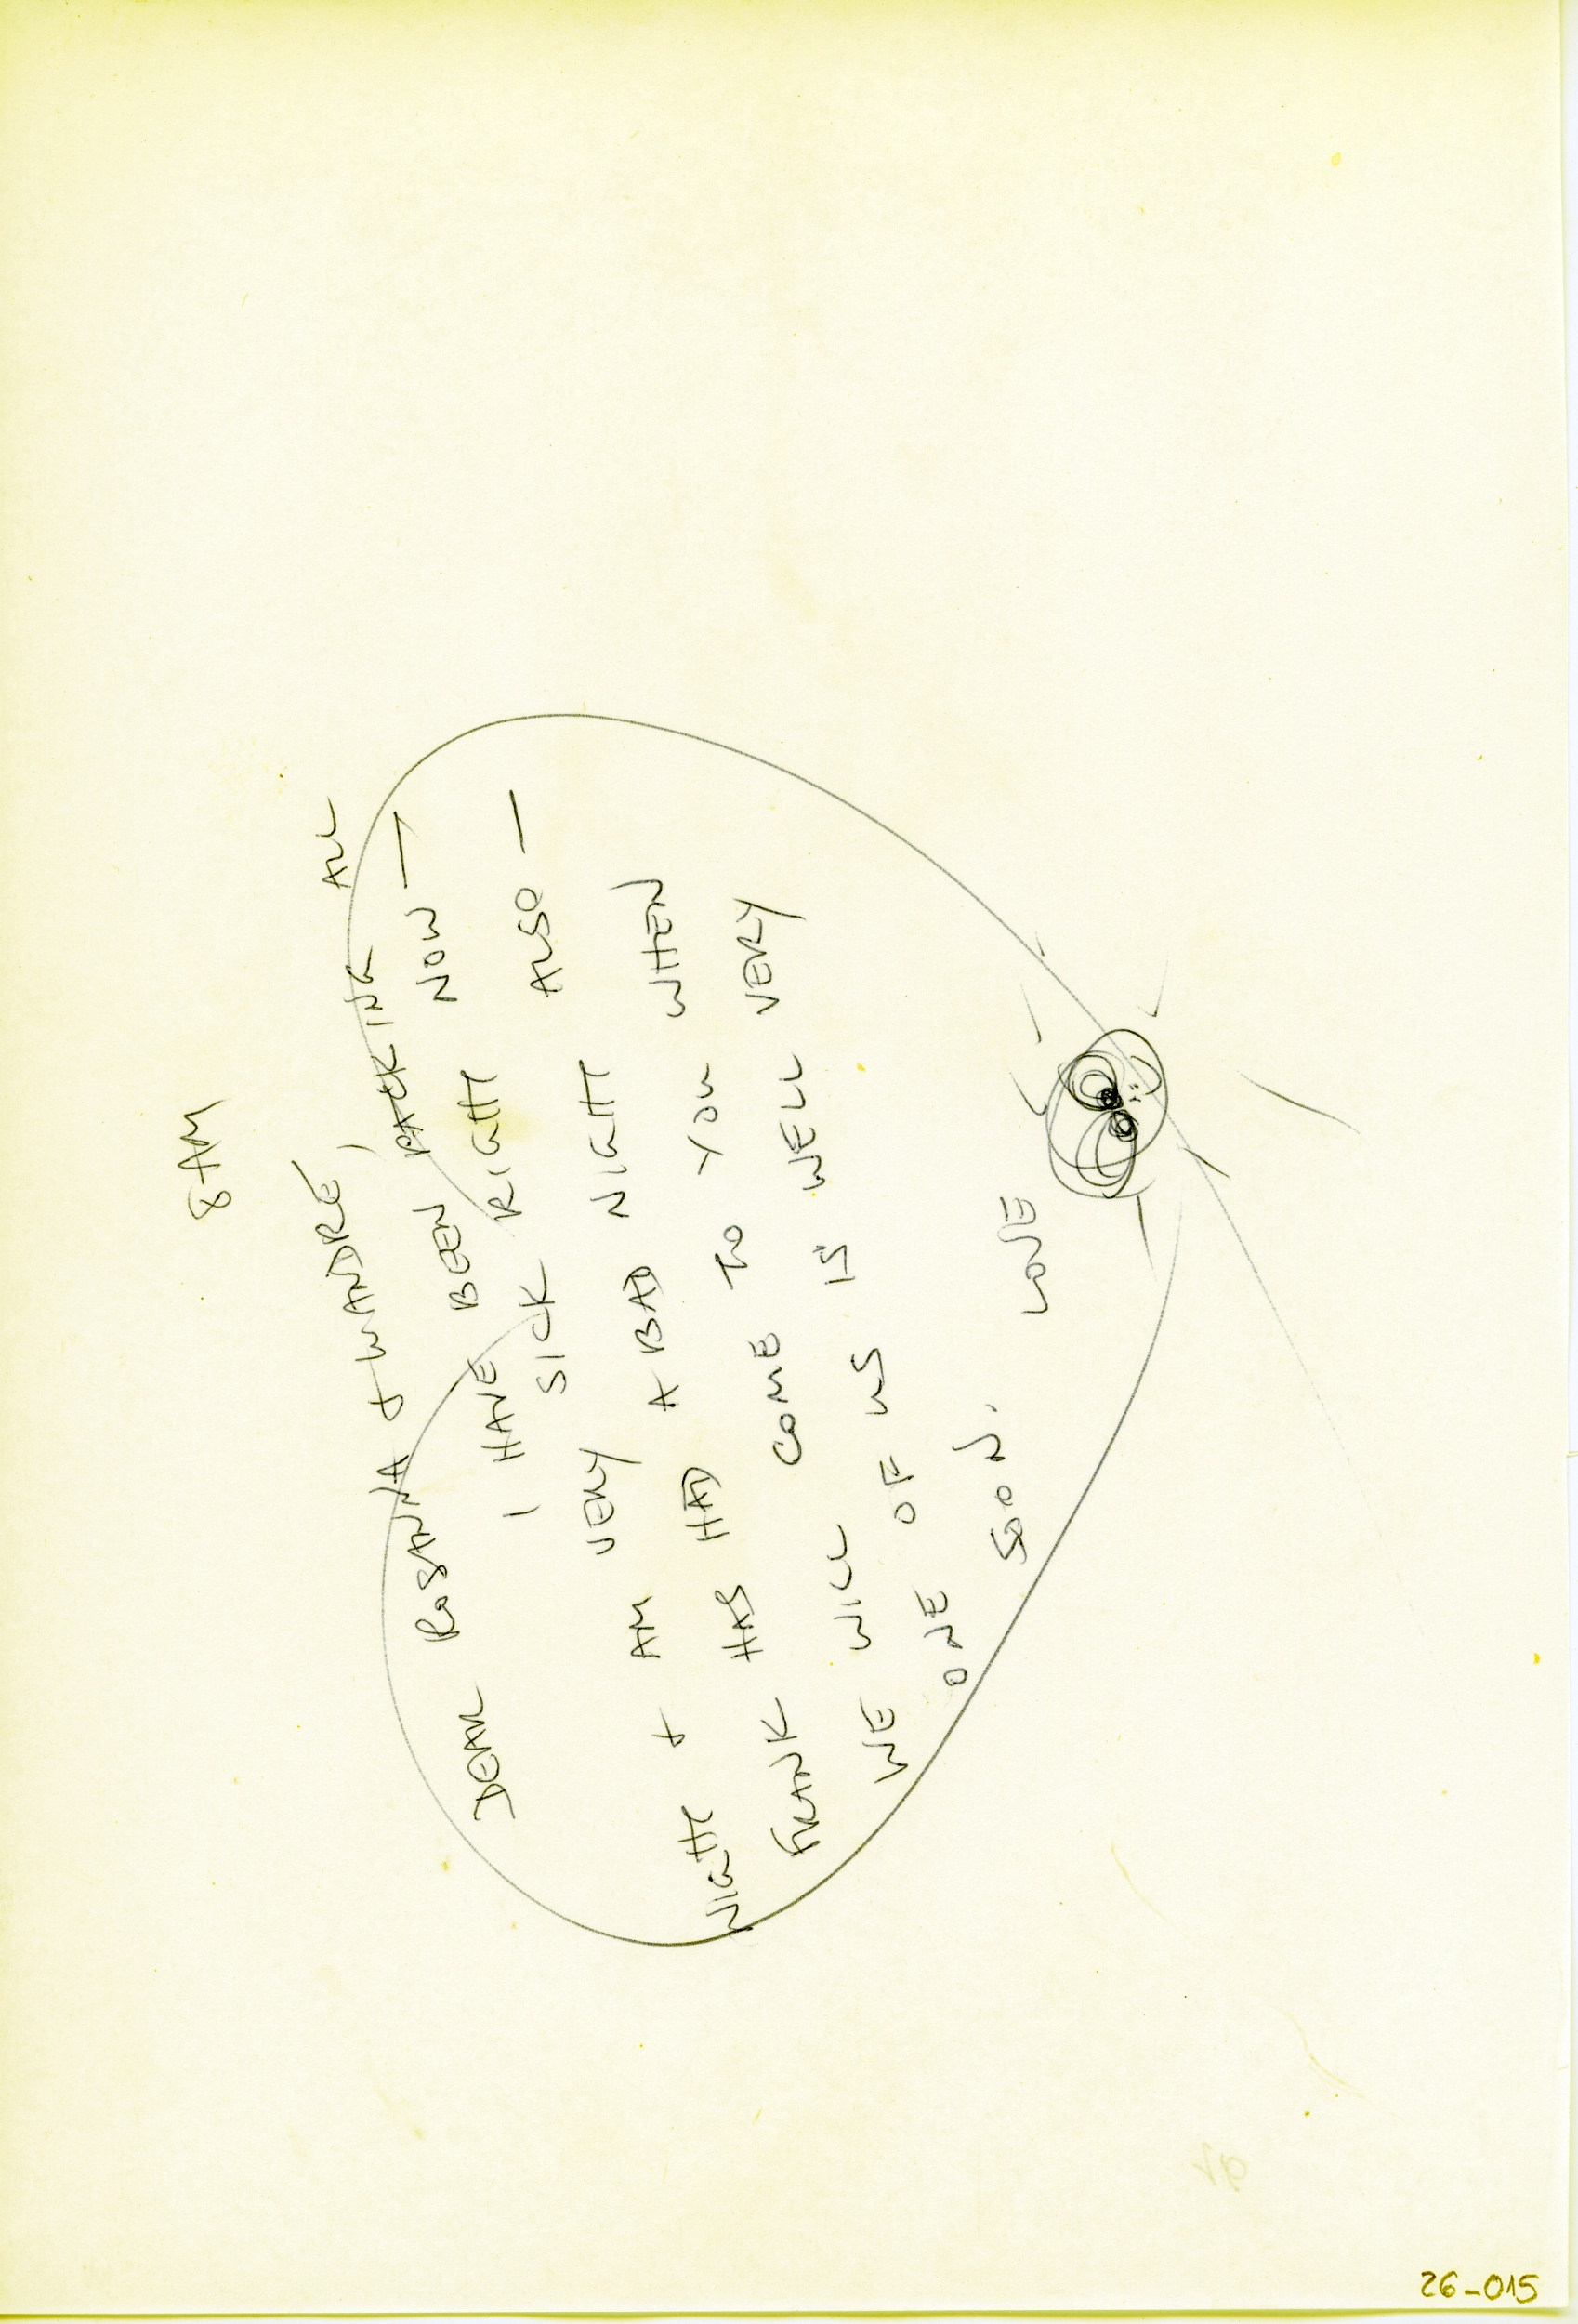 8 AM
DEAR ROSANNA + WANDRÉ,
I HAVE BEEN PACKING ALL
NIGHT + AM VERY SICK RIGHT NOW —
FRANK HAS HAD A BAD NIGHT ALSO —
WE WILL COME TO YOU WHEN
ONE OF US IS WELL VERY
SOON.
LOVE
26-015